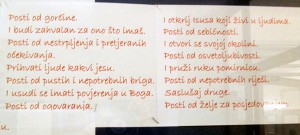 Posti od gorčine.
I budi zahvalan za ono što imaš.
Posti od nestrpljenja i pretjeranih
očekivanja.
Prihvati ljude kakvi jesu.
Posti od pustih i nepotrebnih briga.
I usudi se imati povjerenja u Boga.
Posti od ogovaranja.
I otkrij Isusa koji živi u ljudima.
Posti od sebičnosti.
I otvori se svojoj okolini.
Posti od osvetoljubivosti.
I pruži ruku pomirnicu.
Posti od nepotrebnih riječi.
Saslušaj druge.
Posti od želje za posjedovanjem.
u.